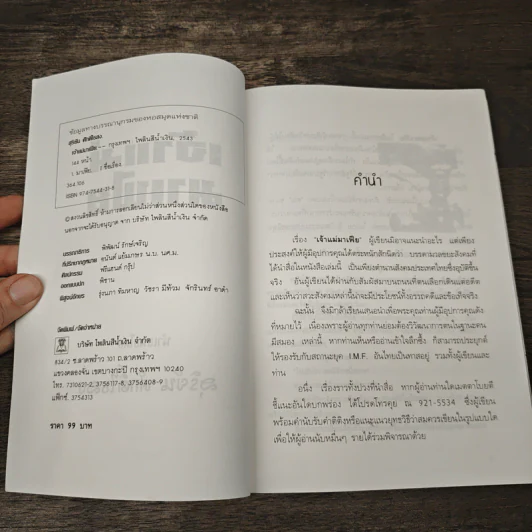 ข้อมูลทางบรรณานุกรมของหอสมุดแห่งชาติ
เจ้าแม่มาเฟีย.-- กรุงเทพฯ ไพลินสีน้ำเงิน, 2543
หน้า
1. มาเฟีย. I ชื่อเรื่อง
364.106
ISBN 974-7544-31-8
© สงวนลิขสิทธิ์ ห้ามการลอกเลียนไม่ว่าส่วนหนึ่งส่วนใดของหนังสือ
นอกจากจะได้รับอนุญาต จาก บริษัท ไพลินสีน้ำเงิน จำกัด
บรรณาธิการ พิพัฒน์ รักษ์เจริญ
ที่ปรึกษากฎหมาย อนันต์ แย้มเกษร น.บ. นศ.ม.
ศิลปกรรม ฟรีแลนด์ กรุ๊ป
ออกแบบปก พิชาน
พิสูจน์อักษร รุ่งนภา ทิมหาญ วัชรา มีท้วม จักรินทร์ อาด้ำ
จัดพิมพ์/จัดจำหน่าย
บริษัท ไพลินสีน้ำเงิน จำกัด
834/2 ซ.ลาดพร้าว 101 ถ.ลาดพร้าว
แขวงคลองจั่น เขตบางกะปิ กรุงเทพฯ 10240
โทร. 7310621-2, 3756117-8, 3756408-9
แฟ็กซ์. 3754313
ราคา 99 บาท
คำนำ
เรื่อง "เจ้าแม่มาเฟีย" ผู้เขียนมิอาจแนะนำอะไร แต่เพียง
ประสงค์ให้ผู้มีอุปการคุณได้ตระหนักสักนิดว่า บรรดามเลขยะสังคมที่
ได้นำสื่อในหนังสือเล่มนี้ เป็นเพียงตำนานสังคมประเทศไทยซึ่งอุบัติขึ้น
จริง อันผู้เขียนได้ผ่านกับสัมผัสมาบานถนที่ตลอดเกียกดิ้นคิดเอียด
และเห็นว่าสวะสังคมเหล่านี้น่าจะมีประโยชน์ทั้งอรรถคดีและข้อเท็จจริง
ฉะนั้น จึงมิกล้าเรียนเสนอนำเพื่อพระคุณท่านผู้มีอุปการคุณดัง
ที่หมายไว้ เนื่องเพราะผู้อานทุกท่านยอมต้องวิวัฒนาการตนในฐานะคน
มีสมอง เหล่านี้ หากท่านเห็นหรืออ่านเข้าใจลึกซึ้ง ก็สามารถประยุกต์
ให้รองรับกับสถานะยุค .I.M.F. อันไทยเป็นทาสอยู่ รวมทั้งผู้อานและ
ท่าน
อนึ่ง เรื่องราวทั้งปวงที่นำสื่อ หากผู้อานท่านใดเมตตาโบยตี
ชี้แนะอันใดบกพร่อง ได้โปรดโทรคุย ณ 921-5534 ซึ่งผู้เขียน
พร้อมคำนับรับคำติติงหรือแนะแนวยุทธวิธีว่าสมควรเขียนในรูปแบบใด
เพื่อให้ผู้อานนับหมื่นๆ รายได้ร่วมพิจารณาด้วย